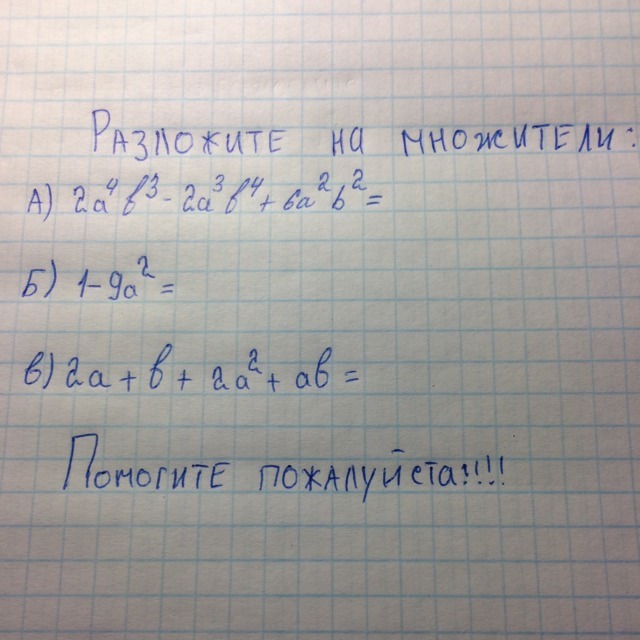 Разложите на множители:
А) 2a⁴b³ - 2a³b⁴ + 6a²b² =
Б) 1 - 9a² =
в) 2a + b + 2a² + ab =
Помогите пожалуйста!!!!